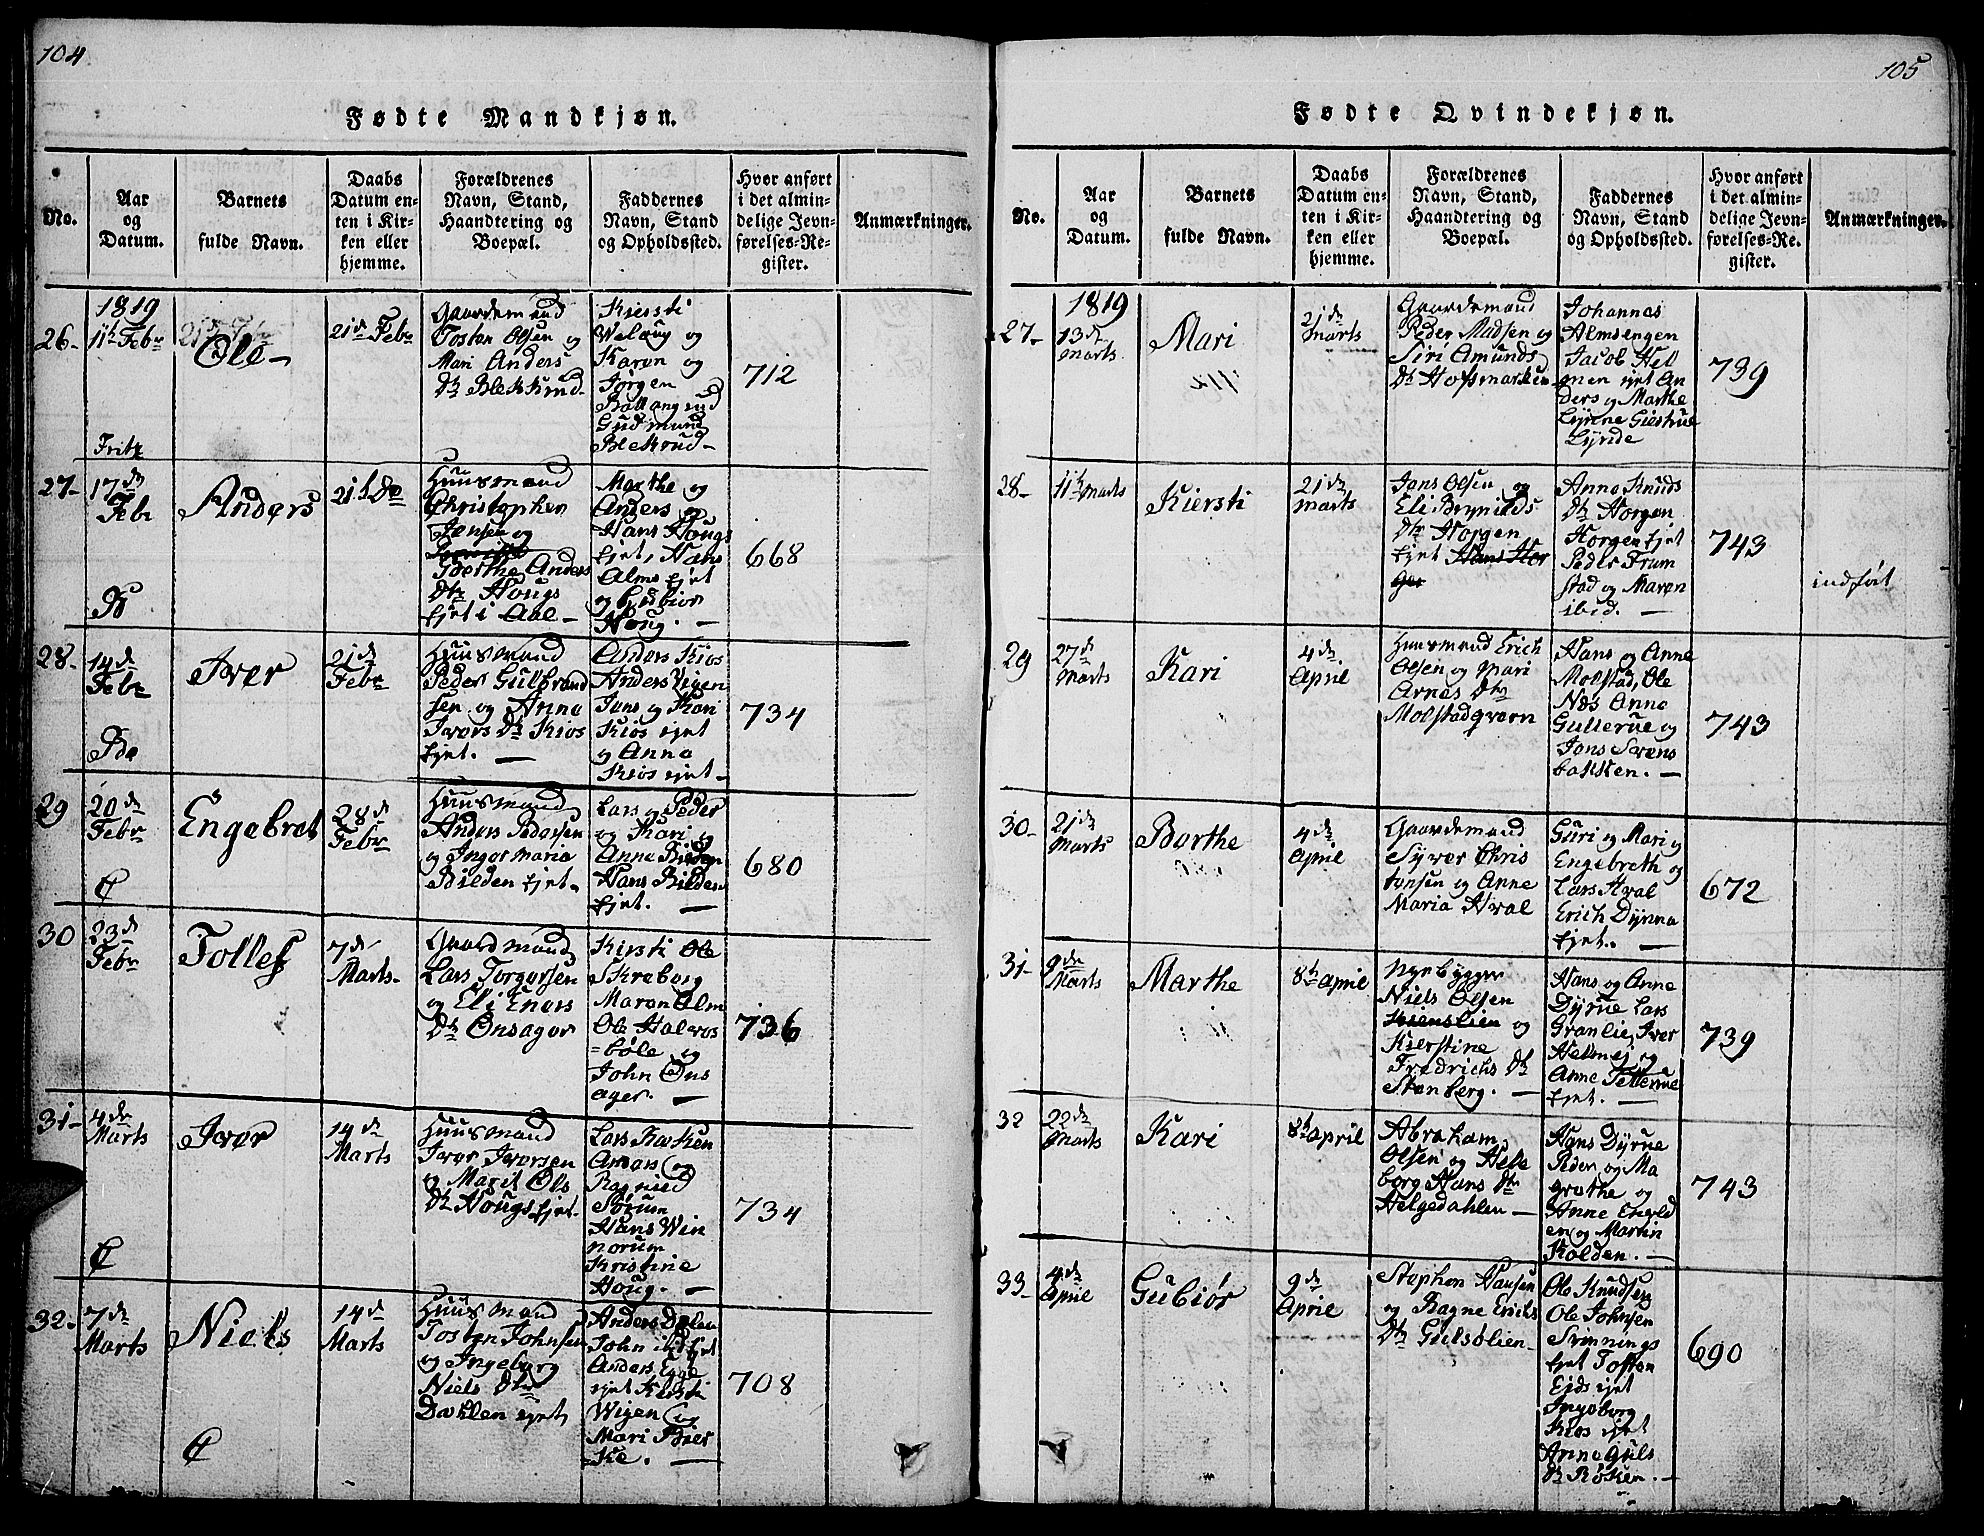 104
Fødte Mandkjøn.
No.
Aar
og
Datum.
Barnets
fulde Navn.
Daabs
Datum en-
ten i Kir-
ken eller
hjemme.
Forældrenes
Navn, Stand,
Haandtering og
Boepæl.
Faddernes
Navn, Stand
og Opholdssted.
Hvor anført
i det almin-
delige Jevn-
førelses-Re-
gister.
Anmærkninger.
1819
26-
11te Febr
Ole-
21de Febr
Gaardemand
Tosten Olsen og
Mari Anders
Dtr Blekkrud-
Kiersti
og
Karen og
Jørgen
Ballangrud
Gudmund
Blekrud-
712
27-
17de
Febr
Anders
21de Do
Huusmand
Christopher
Jensen og
Berthe Anders
Dtr Hougs
Ejet i Aal-
Marthe og
Anders og
Hans Hougs
Ejet, Hans
Alms Ejet
og Gubiør
Houg. -
668
28-
14de
Febr
Iver
21de
Febr
Huusmand
Peder Gulbrand
sen og Anne
Ivers Dtr Kios
Ejet. -
Anders Kios
Anders Vigen
Jens og Kari
Kios ejet
og Anne
Kios ejet-
734
29
20de
Febr
Engebret
28de
Febr
Huusmand
Anders Pedersen
og Inger Maria
Bilden Ejet-
Lars og Peder
og Kari og
Anne Bilden
Hans Bilden
Ejet. -
680
30
23de
Febr
Tollef
7de
Marts-
Gaardmand
Lars Torgersen
og Eli Eners
Dtr Onsager
Kirsti Ole
Skreberg
Maren Alm
Ole Halvors
=bøle og
John Ons
ager. -
736
31-
4de
Marts
Iver
14de
Marts
Huusmand
Iver Iversen
og Marit Ols
Dtr Hougs Ejet-
Lars
Anders og
Ragnild
Sørum
Hans Win
norum
Kristine
Houg. -
734
32-
7de
Marts
Niels
14de
Marts
Huusmand
Tosten Johnsen
og Ingeborg
Niels Dtr
Dahlen ejet
Anders Dælen
John
Anders Egge
ejet Kiersti
Wigen og
Mari
708
105
Fødte Qvindekjøn.
No.
Aar
og
Datum.
Barnets
fulde Navn.
Daabs
Datum en-
ten i Kir-
ken eller
hjemme.
Forældrenes
Navn, Stand,
Haandtering og
Boepæl.
Faddernes
Navn, Stand
og Opholdssted.
Hvor anført
i det almin-
delige Jevn-
førelses-Re-
gister.
Anmærkninger.
1819
27-
13de
Marts
Mari
21de
Marts
Gaardemand
Peder Madsen og
Siri Amunds
Dtr Hofsmarken
Johannes
Almsengen
Jacob Hel
men ejet An
ders og Marthe
739
28-
11te Marts
Kiersti
21de
Marts
Jens Olsen og
Eli Brynilds
Dtr Horgen
Ejet Hans Hor
gen
Anne Knuds
Dtr Horgen
Horgen Ejet
Peder Frum
stad og Maren
ibid. -
743
indført
29
27de
Marts
Kari
4de
April
Huusmand Erich
Olsen og Mari
Arnes Dtr
Molstadqvern
Hans og Anne
Molstad, Ole
Næs Anne
Gullerue og
Jens Svens
bakken. -
743
30-
21de
Marts
Berthe
4de
April
Gaardemand
Syver Chris
tensen og Anne
Maria Hval
Guri og Mari og
Engebreth og
Lars Hval
Erich Dynna
Ejet. -
672
31-
9de
Marts
Marthe
8de April
Nyebygger
Niels Olsen
og
Kierstine
Fredrichs Dtr
Stenberg. -
Hans og Anne
Dyrue Lars
Granlie, Iver
Helmei og
Anne Tellerue
Ejet. -
739
32
22de
Marts
Kari
8de April
Abraham
Olsen og Hele
borg Hans Dtr
Helgedahlen-
Hans Dyrue
Peder og Ma
grethe og
Anne
en og Martin
Kolden. -
743
33-
4de
April
Gubiør
9de
April
Stephen Hansen
og Ragne Erichs
Dtr Gulsølien-
Ole Knudsen
Ole Johnsen
Svinnings
Ejet Tosten
Eids ejet
Ingeborg
Kios ejet
Anne Guls
Dtr Røken. -
690